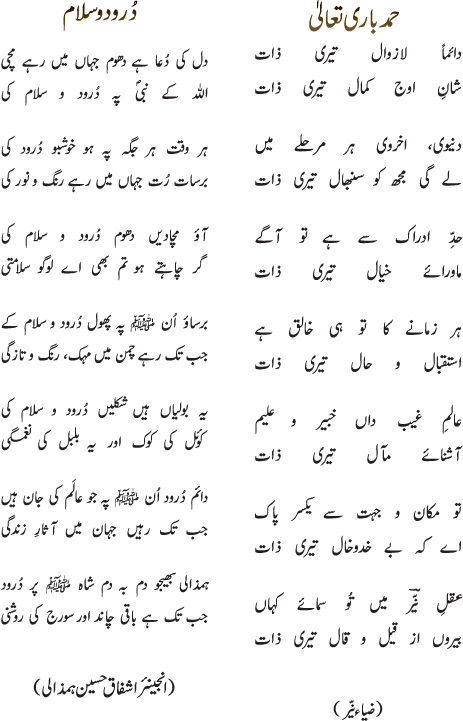 حمد باری تعالیٰ
دائماً لازوال تیری ذات
شانِ اوج کمال تیری ذات
دنیوی، اخروی ہر مرحلے میں
لے گی مجھ کو سنبھال تیری ذات
حدِّ ادراک سے ہے تو آگے
ماورائے خیال تیری ذات
ہر زمانے کا تو ہی خالق ہے
استقبال و حال تیری ذات
عالمِ غیب داں خبیر و علیم
آشنائے مآل تیری ذات
تو مکان و جہت سے یکسر پاک
اے کہ بے خدوخال تیری ذات
عقلِ نیّر میں تُو سمائے کہاں
بیروں از قیل و قال تیری ذات
(ضیاء نیّر)
دُرود و سلام
دل کی دُعا ہے دھوم جہاں میں رہے مچی
اللہ کے نبیؐ پہ دُرود و سلام کی
ہر وقت ہر جگہ پہ ہو خوشبو دُرود کی
برسات رُت جہاں میں رہے رنگ و نور کی
آؤ مچادیں دھوم دُرود و سلام کی
گر چاہتے ہو تم بھی اے لوگو سلامتی
برساؤ اُن ﷺ پہ پھول دُرود و سلام کے
جب تک رہے چمن میں مہک، رنگ و تازگی
یہ بولیاں ہیں شکلیں دُرود و سلام کی
کوئل کی کوک اور یہ بلبل کی نغمگی
دائم دُرود اُن ﷺ پہ جو عالَم کی جان ہیں
جب تک رہیں جہان میں آثارِ زندگی
ہمذالی بھیجو دم بہ دم شاہ ﷺ پر دُرود
جب تک ہے باقی چاند اور سورج کی روشنی
(انجینئر اشفاق حسین ہمذالی)